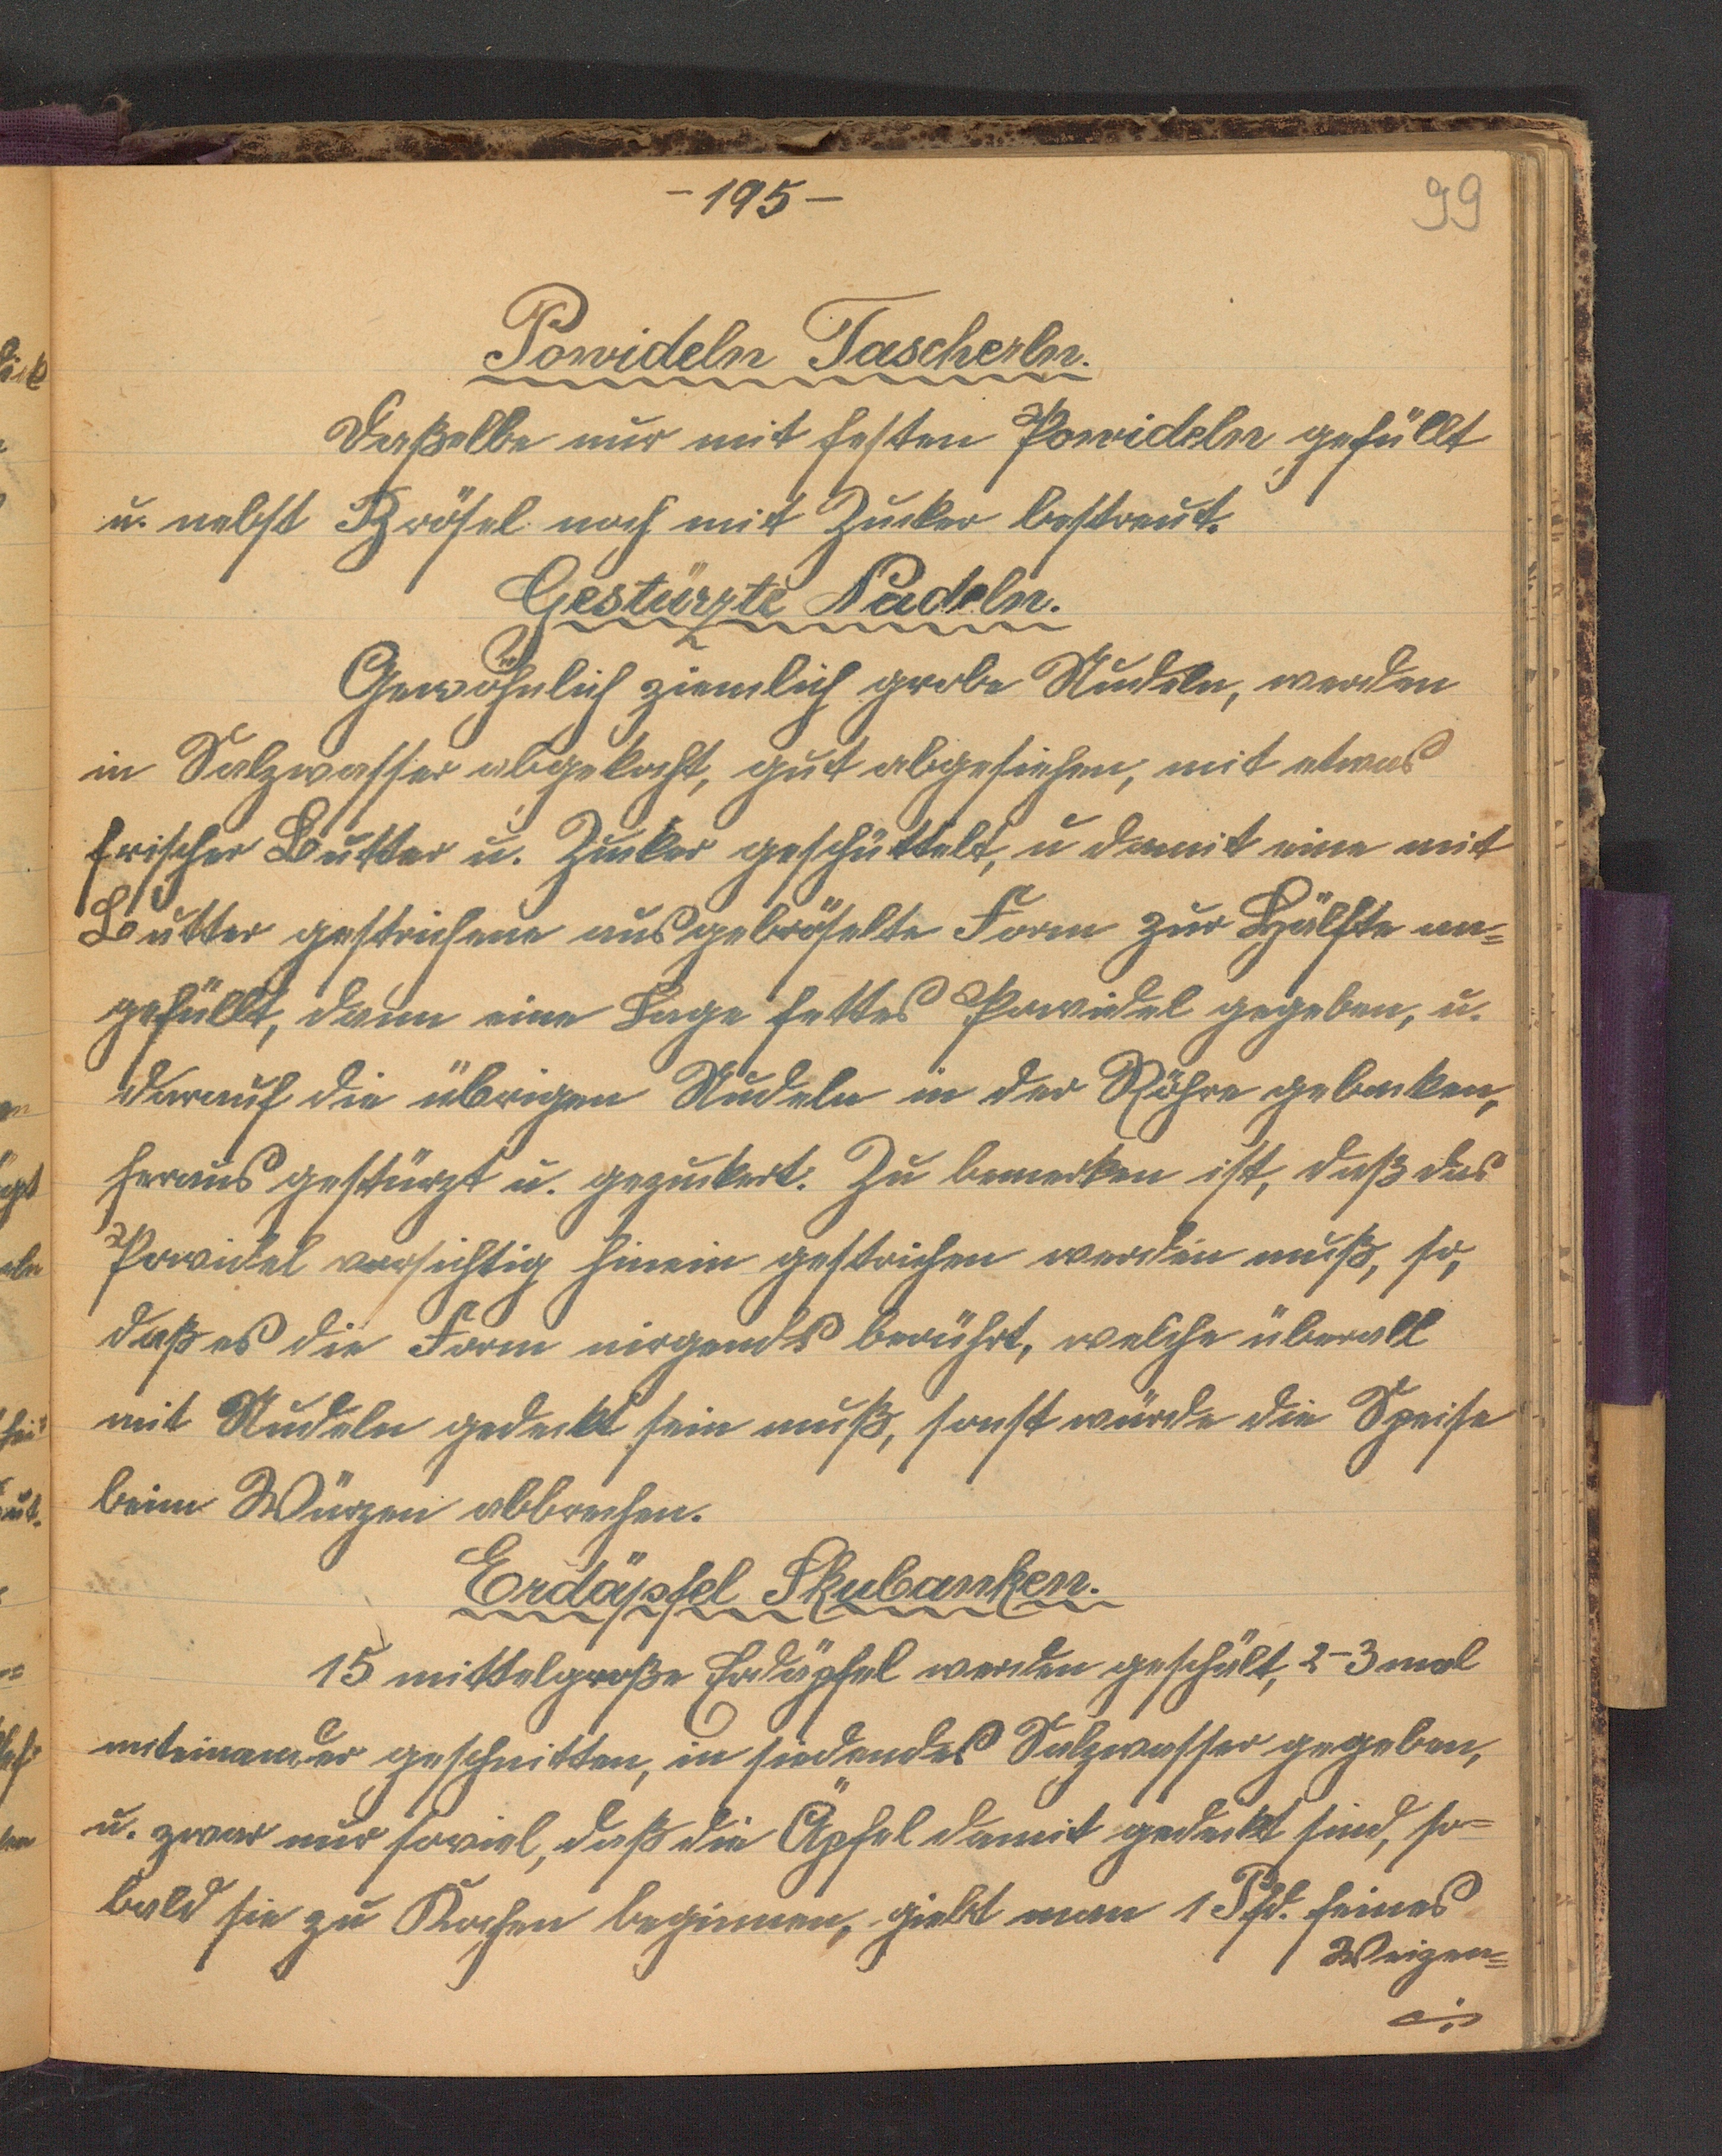 -195-
99
Powideln Tascherln.
Daßelbe nur mit festen Powideln gefüllt
u. nebst Brösel noch mit Zucker bestreut.
Gestürzte Nudeln.
Gewöhnlich ziemlich grobe Nudeln, werden
in Salzwasser abgekocht, gut abgesiehen, mit etwas
frischer Butter u. Zucker geschüttelt, u damit eine mit
Butter gestrichene ausgebröselte Form zur Hälfte an=
gefüllt, dann eine Lage fettes Powidel gegeben, u.
darauf die übrigen Nudeln in der Röhre gebacken,
heraus gestürzt u. gezuckert. Zu bemerken ist, daß das
Powidel vorsichtig hinein gestrichen werden muß, so,
daß es die Form nirgends berührt, welche überall
mit Nudeln gedeckt sein muß, sonst würde die Speise
beim Würzen abbrechen.
Erdäpfel Skubanken.
15 mittelgroße Erdäpfel werden geschält, 2-3 mal
miteinander geschnitten, in siedendes Salzwasser gegeben,
u. zwar nur soviel, daß die Äpfel damit gedeckt sind, so=
bald sie zu Kochen beginnen, giebt man 1 Pfd. feines
Weizen=